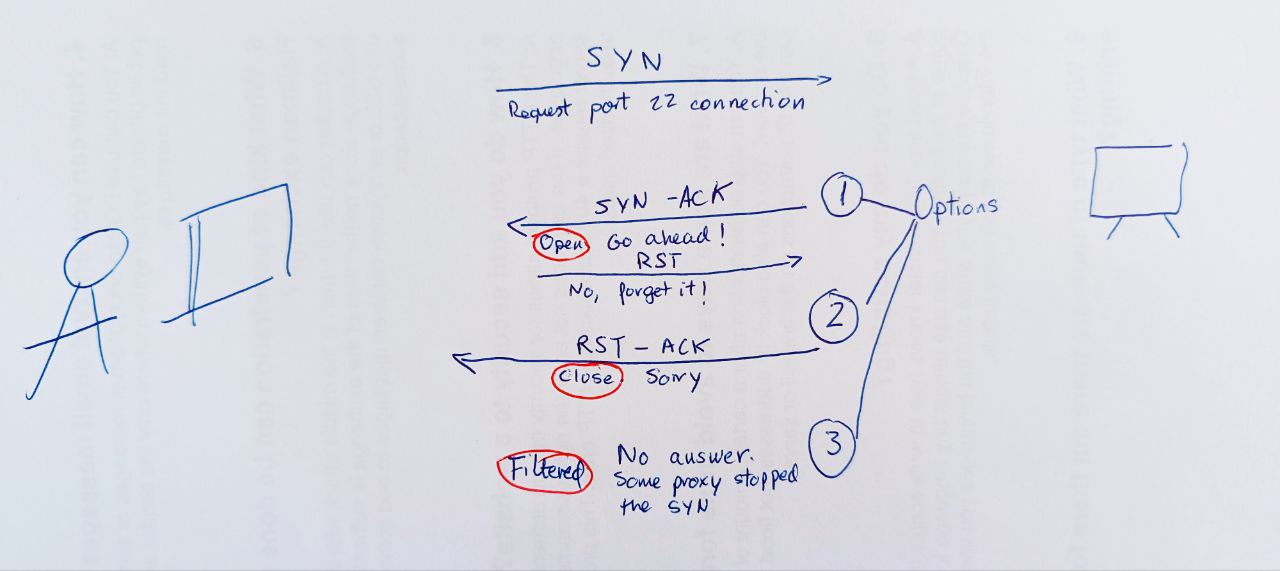 SYN
Request port 22 connection
SYN - ACK
1
Options
Open Go ahead!
RST
No, forget it!
2
RST - ACK
Close Sorry
3
Filtered
No answer.
Some proxy stopped
the SYN